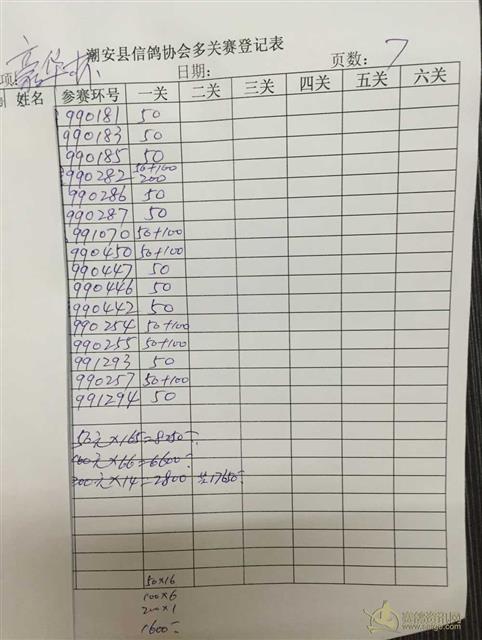 潮安县信鸽协会多关赛登记表
项: 豪华杯 日期: 页数: 7
姓名 参赛环号 一关 二关 三关 四关 五关 六关
990181 50
990183 50
990185 50
990282 50+100 200
990286 50
990287 50
991070 50+100
990450 50+100
990447 50
990446 50
990442 50
990254 50+100
990255 50+100
991293 50
990257 50+100
991294 50
50元×165=8250
100元×66=6600
200元×14=2800 共17650
50×16
100×6
200×1
1600
赛鸽资讯网